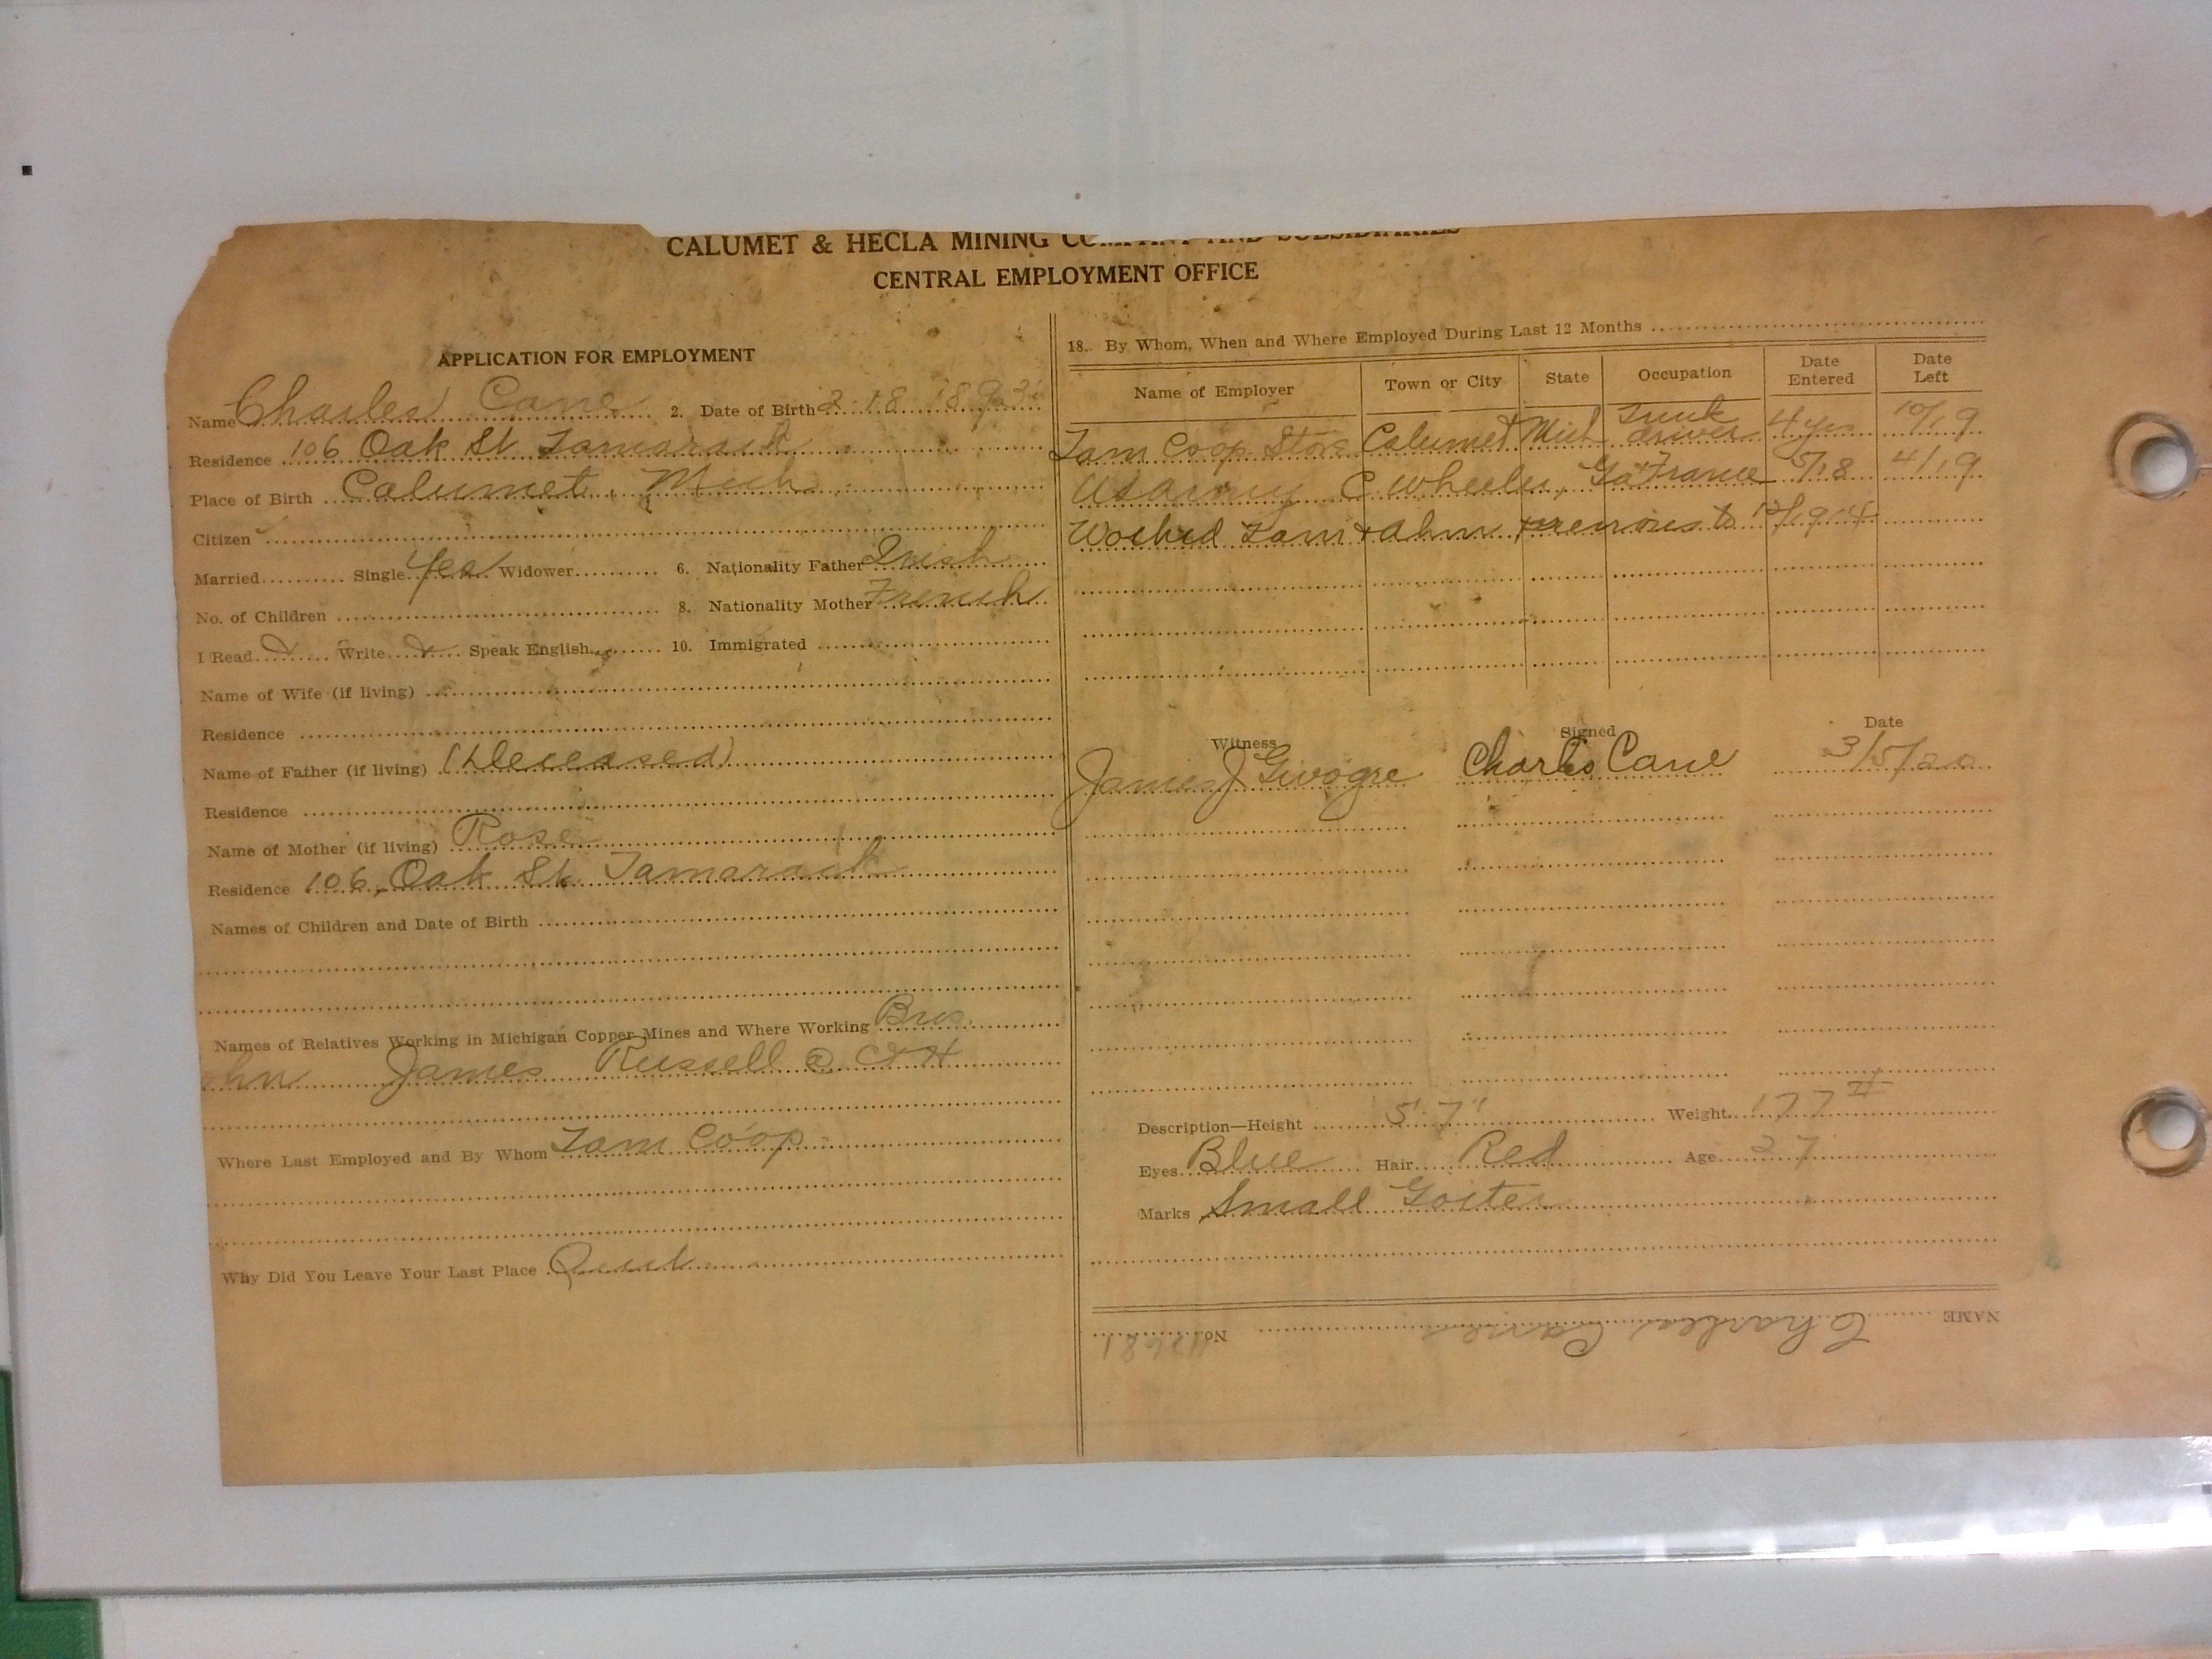 CALUMET & HECLA MINING COMPANY AND SUBSIDIARIES
CENTRAL EMPLOYMENT OFFICE
APPLICATION FOR EMPLOYMENT
Name Charles Cane 2. Date of Birth 2-18-1893
Residence 106 Oak St. Tamarack
Place of Birth Calumet, Mich
Citizen
Married Single Yes Widower 6. Nationality Father Irish
No. of Children 8. Nationality Mother French
I Read Write Speak English 10. Immigrated
Name of Wife (if living)
Residence
Name of Father (if living) (Deceased)
Residence
Name of Mother (if living) Rose
Residence 106 Oak St. Tamarack
Names of Children and Date of Birth
Names of Relatives Working in Michigan Copper Mines and Where Working Bros.
ohn James Russell @ C & H
Where Last Employed and By Whom Tam Coop
Why Did You Leave Your Last Place Quit
18. By Whom, When and Where Employed During Last 12 Months
Name of Employer Town or City State Occupation Date Entered Date Left
Tam Coop Store Calumet Mich Truck driver 4 yrs 10/19
US Army C. Wheeler, Ga + France 5/18 4/19
Worked Tam + Ahm previous to 12/1914
Witness Signed Date
James J Charles Cane 3/5/20
Description—Height 5' 7" Weight 177 #
Eyes Blue Hair Red Age 27
Marks Small Goiter
NAME Charles Cane No.